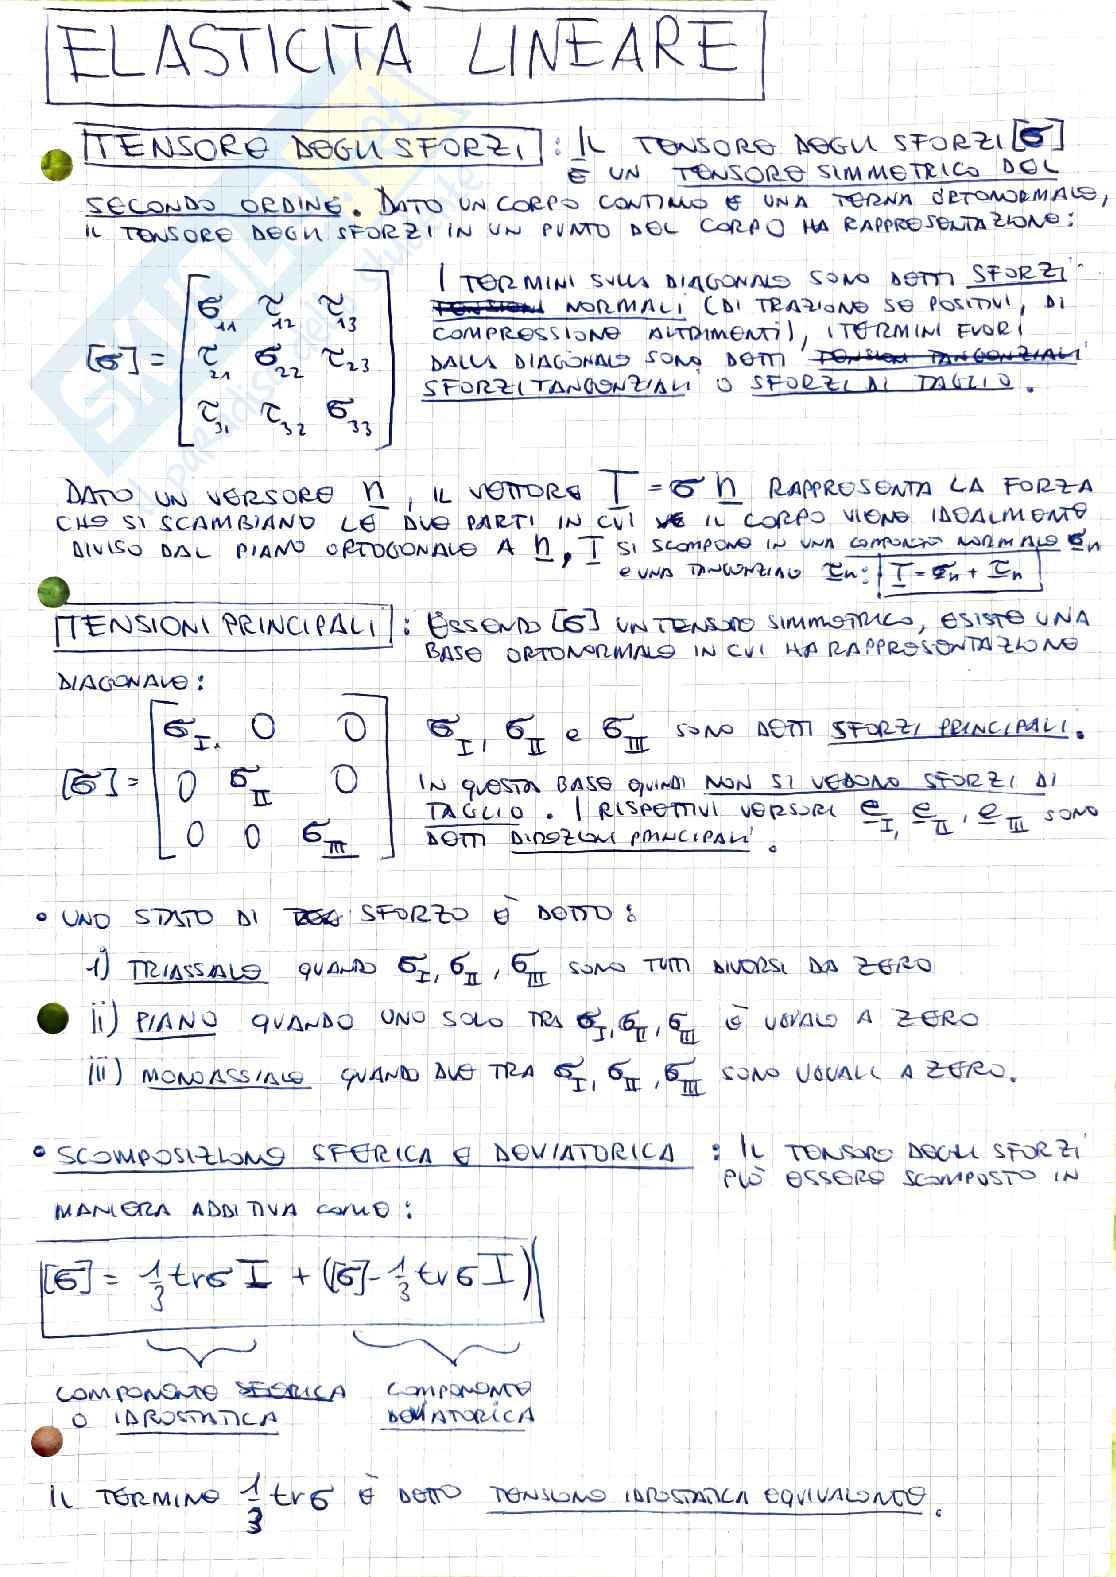 ELASTICITÀ LINEARE
TENSORE DEGLI SFORZI : IL TENSORE DEGLI SFORZI [σ]
È UN TENSORE SIMMETRICO DEL
SECONDO ORDINE. DATO UN CORPO CONTINUO E UNA TERNA ORTONORMALE,
IL TENSORE DEGLI SFORZI IN UN PUNTO DEL CORPO HA RAPPRESENTAZIONE:
I TERMINI SULLA DIAGONALE SONO DETTI SFORZI
TENSIONI NORMALI (DI TRAZIONE SE POSITIVI, DI
COMPRESSIONE ALTRIMENTI), I TERMINI FUORI
DALLA DIAGONALE SONO DETTI TENSIONI TANGENZIALI
SFORZI TANGENZIALI O SFORZI DI TAGLIO.
[σ] =
σ11 τ12 τ13
τ21 σ22 τ23
τ31 τ32 σ33
DATO UN VERSORE n, IL VETTORE T = σ n RAPPRESENTA LA FORZA
CHE SI SCAMBIANO LE DUE PARTI IN CUI IL CORPO VIENE IDEALMENTE
DIVISO DAL PIANO ORTOGONALE A n, T SI SCOMPONE IN UNA COMPONENTE NORMALE σn
E UNA TANGENZIALE τn: T = σn + τn
TENSIONI PRINCIPALI : ESSENDO [σ] UN TENSORE SIMMETRICO, ESISTE UNA
BASE ORTONORMALE IN CUI HA RAPPRESENTAZIONE
DIAGONALE:
[σ] =
σI 0 0
0 σII 0
0 0 σIII
σI, σII e σIII SONO DETTI SFORZI PRINCIPALI.
IN QUESTA BASE QUINDI NON SI VEDONO SFORZI DI
TAGLIO. I RISPETTIVI VERSORI eI, eII, eIII SONO
DETTI DIREZIONI PRINCIPALI.
• UNO STATO DI SFORZO È DETTO:
i) TRIASSIALE QUANDO σI, σII, σIII SONO TUTTI DIVERSI DA ZERO
ii) PIANO QUANDO UNO SOLO TRA σI, σII, σIII È UGUALE A ZERO
iii) MONOASSIALE QUANDO DUE TRA σI, σII, σIII SONO UGUALI A ZERO.
• SCOMPOSIZIONE SFERICA E DEVIATORICA : IL TENSORE DEGLI SFORZI
PUÒ ESSERE SCOMPOSTO IN
MANIERA ADDITIVA COME:
[σ] = 1/3 trσ I + ([σ] - 1/3 trσ I)
COMPONENTE SFERICA COMPONENTE
O IDROSTATICA DEVIATORICA
IL TERMINE 1/3 trσ È DETTO TENSIONE IDROSTATICA EQUIVALENTE.